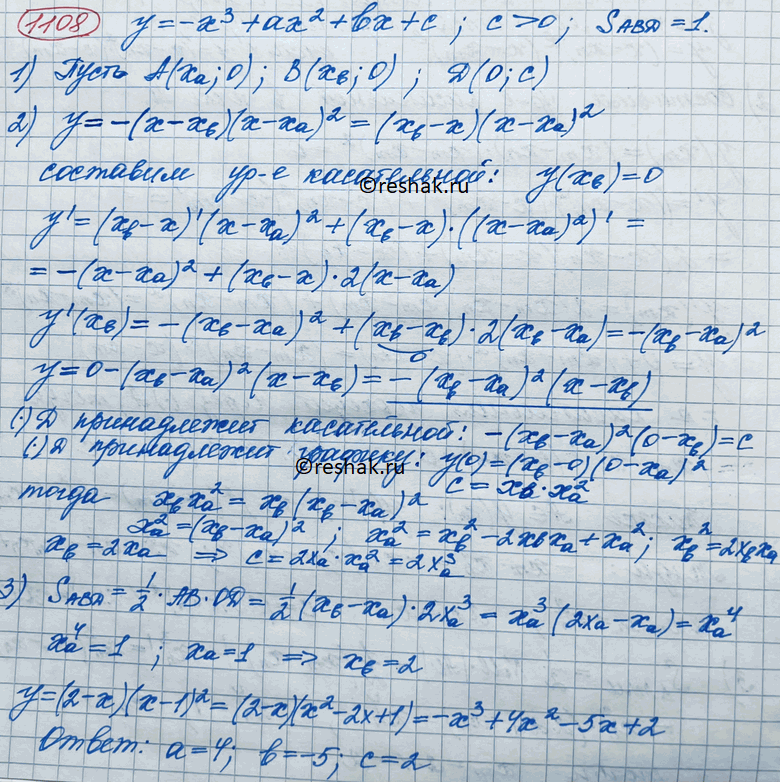 1108 y = -x³ + ax² + bx + c ; c > 0 ; S_ABD = 1.
1) Пусть A(xa; 0) ; B(xв; 0) ; D(0; c)
2) y = -(x - xв)(x - xa)² = (xв - x)(x - xa)²
составим ур-е касательной: y(xв) = 0
©reshak.ru
y' = (xв - x)'(x - xa)² + (xв - x)·((x - xa)²)' =
= -(x - xa)² + (xв - x)·2(x - xa)
y'(xв) = -(xв - xa)² + (xв - xв)·2(xв - xa) = -(xв - xa)²
0
y = 0 - (xв - xa)²(x - xв) = -(xв - xa)²(x - xв)
(·) D принадлежит касательной: -(xв - xa)²(0 - xв) = c
(·) D принадлежит графику: y(0) = (xв - 0)(0 - xa)² =
©reshak.ru
c = xв·xa²
тогда xв xa² = xв(xв - xa)²
xa² = (xв - xa)² ; xa² = xв² - 2xвxa + xa² ; xв² = 2xвxa
xв = 2xa ⇒ c = 2xa·xa² = 2xa³
3) S_ABD = 1/2·AB·OD = 1/2(xв - xa)·2xa³ = xa³(2xa - xa) = xa⁴
xa⁴ = 1 ; xa = 1 ⇒ xв = 2
y = (2 - x)(x - 1)² = (2 - x)(x² - 2x + 1) = -x³ + 4x² - 5x + 2
Ответ: a = 4; b = -5; c = 2